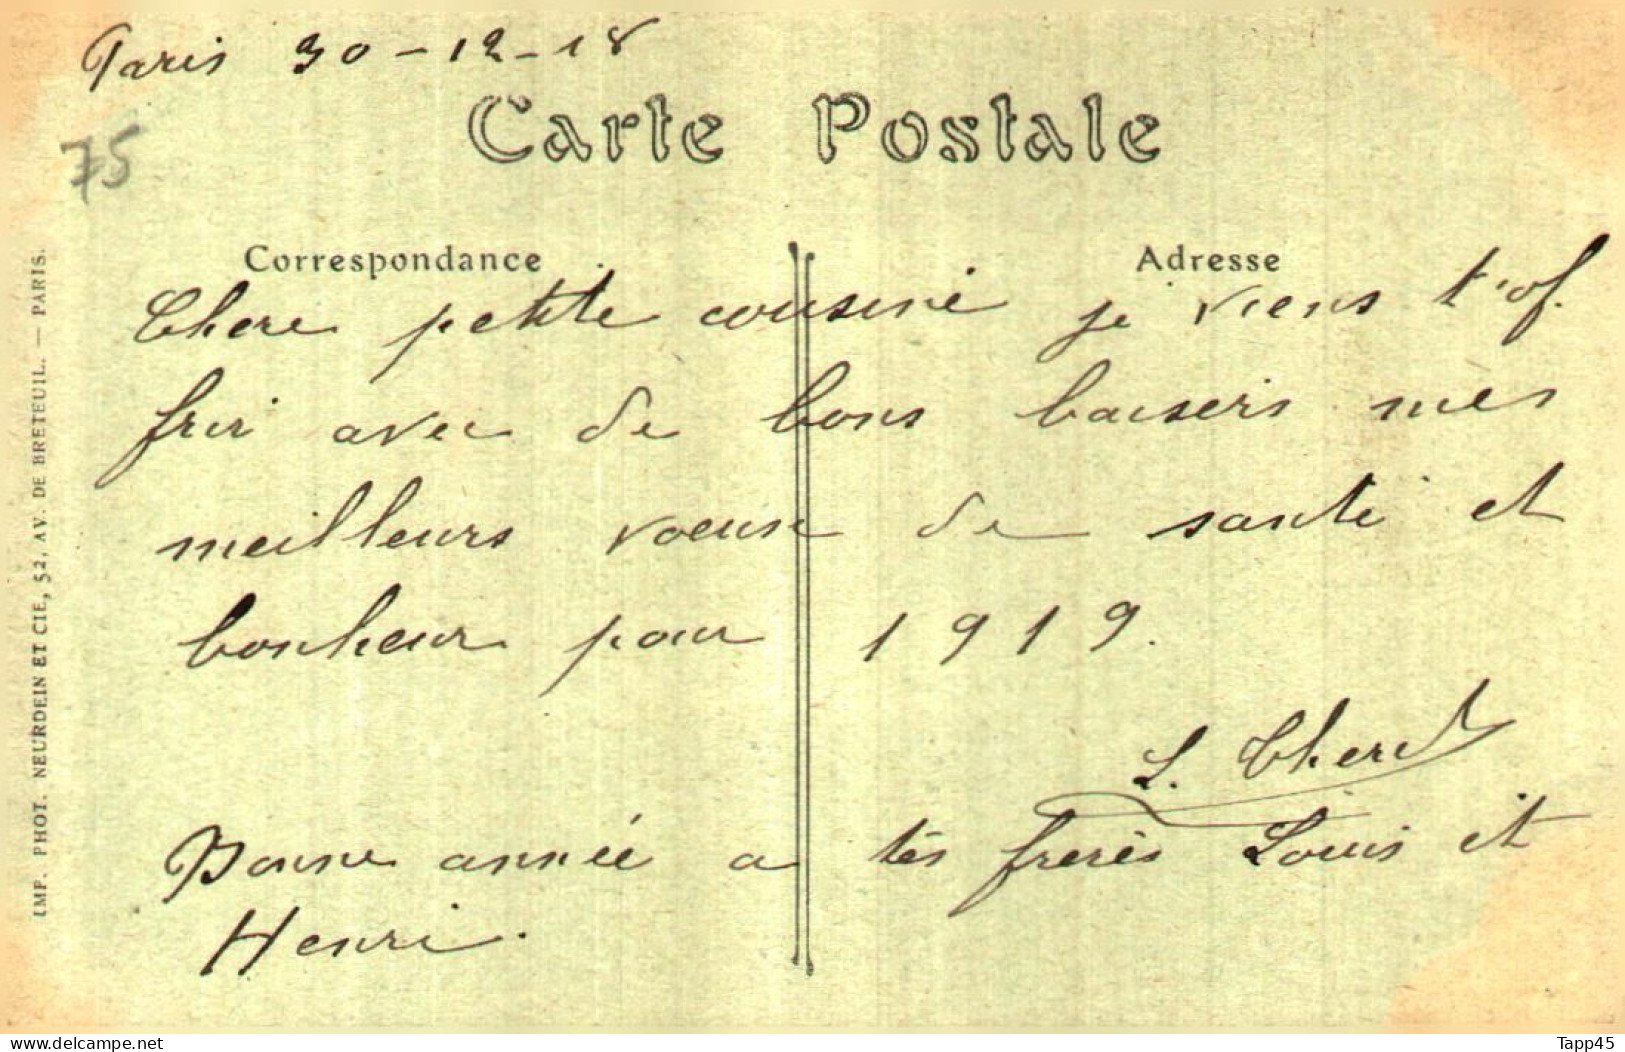 Paris 30-12-18
75
Carte Postale
Correspondance
Adresse
Chere petite cousine je viens t'of.
frir avec de bons baisers mes
meilleurs voeux de santé et
bonheur pour 1919.
L.
Bonne année a tes freres Louis et
Henri.
IMP. PHOT. NEURDEIN ET CIE, 52, AV. DE BRETEUIL. — PARIS.
www.delcampe.net
Tapp45